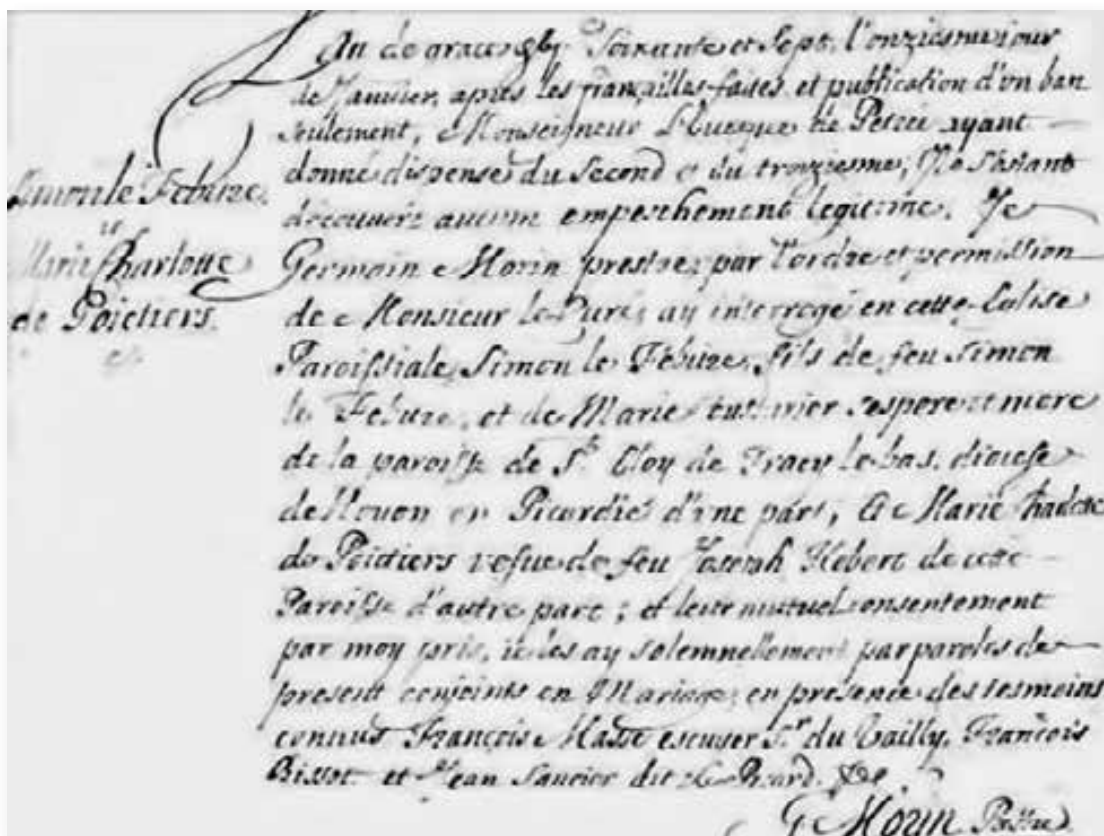 Simon le Febure
et
Marie Charlotte
de Poictiers.
L'An de grace Soixante et Sept. l'onziesme jour
de Januier, apres les fiançailles faites, et publication d'vn ban
seulement, Monseigneur L'Euesque de Petrée ayant
donné dispense du Second et du troiziesme; Ne s'estant
découuert aucun empeschement legitime. Je
Germain Morin prestre, par l'ordre et permission
de Monsieur le Curé, ay interrogé en cette Eglise
Paroissiale, Simon le Febure, fils de feu Simon
le Febure, et de Marie ses pere et mere
de la paroisse de St. Eloy de Tracy le bas, diocese
de Noyon en Picardie d'vne part, Et Marie
de Poictiers vefue de feu Joseph Hebert de
Paroisse d'autre part; et leur mutuel consentement
par moy pris, je les ay solemnellement par paroles de
present conjoints en Mariage, en presence des tesmoins
connus François Massé escuyer Sr. du Vailly, François
Bissot et Jean Saucier dit
G Morin Prestre